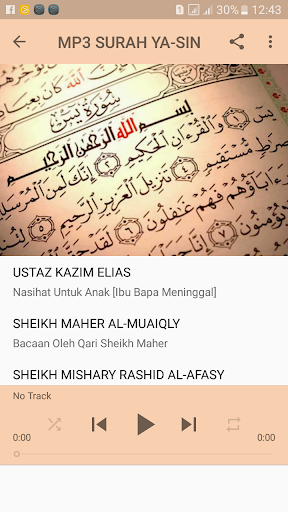 12:43
MP3 SURAH YA-SIN
سورة يس
بسم الله الرحمن الرحيم
يس ١ والقرءان الحكيم ٢ إنك لمن المرسلين
صرط مستقيم ٤ تنزيل العزيز الرحيم ٥
ءاباؤهم فهم غفلون ٦ لقد حق
USTAZ KAZIM ELIAS
Nasihat Untuk Anak [Ibu Bapa Meninggal]
SHEIKH MAHER AL-MUAIQLY
Bacaan Oleh Qari Sheikh Maher
SHEIKH MISHARY RASHID AL-AFASY
No Track
0:00
0:00